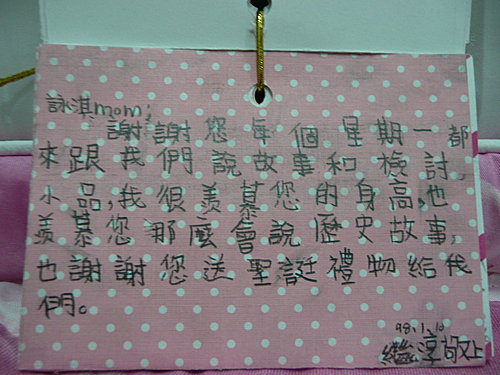 詠淇mom:
謝謝您每個星期一都
來跟我們說故事和檢討
小品,我很羨慕您的身高,也
羨慕您那麼會說歷史故事,
也謝謝您送聖誕禮物給我
們。
98.1.10
繼淳敬上